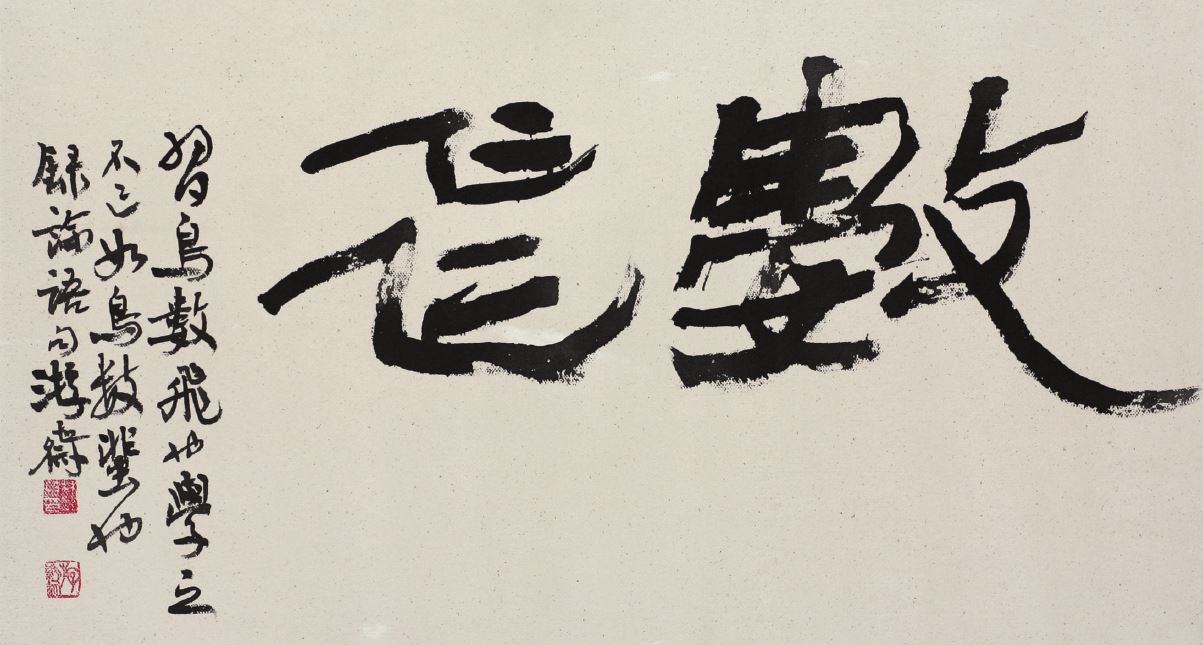 數飛
習鳥數飛也學之
不已如鳥數蜚也
録論語句游